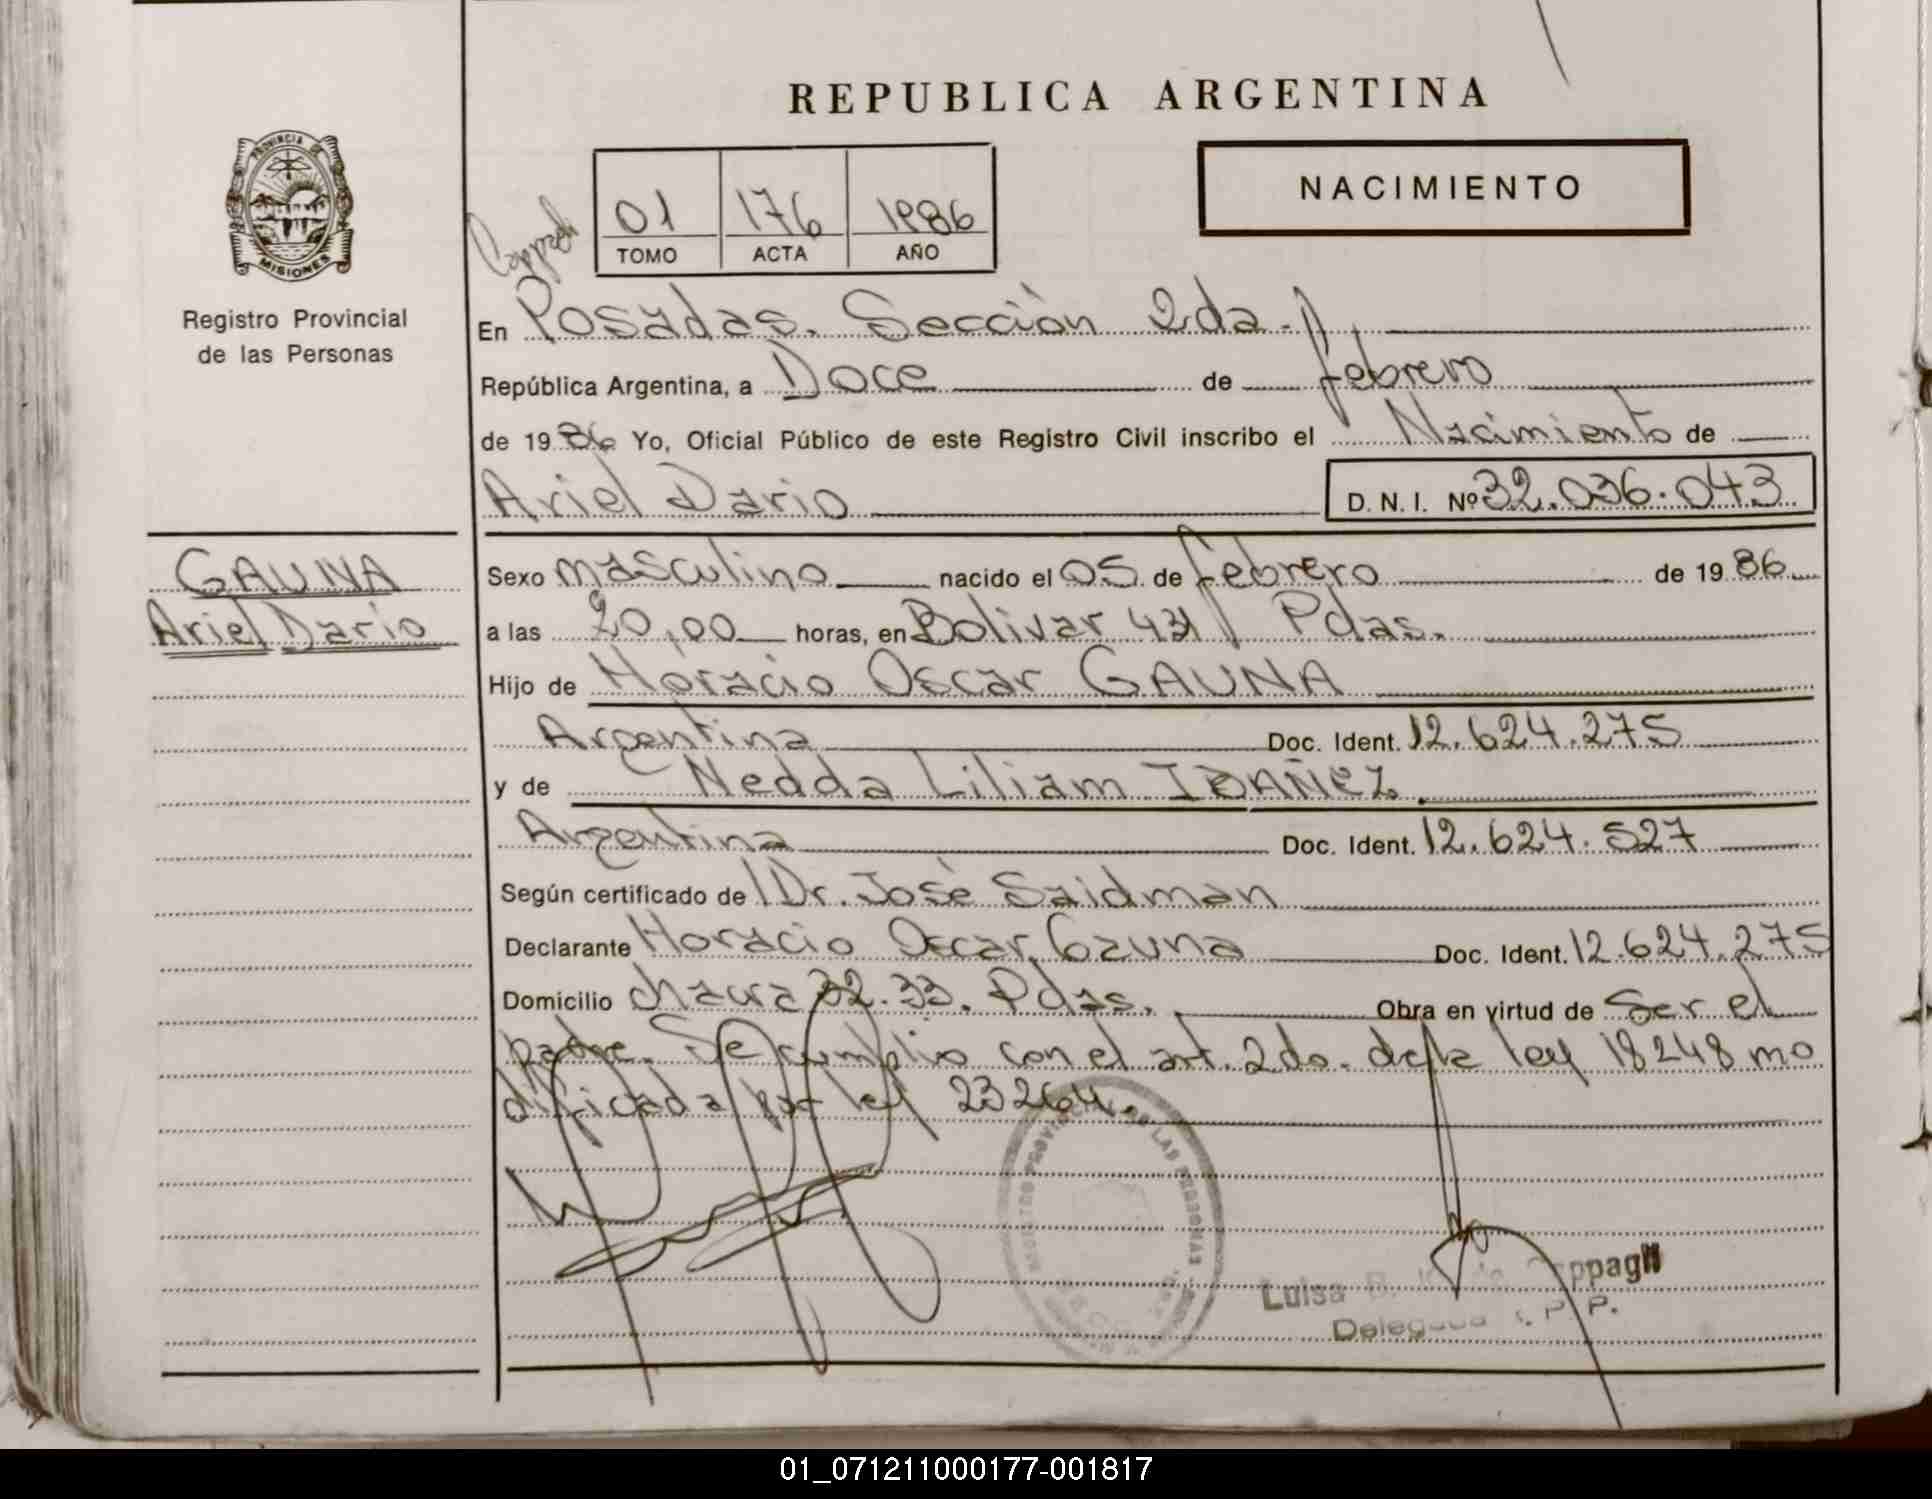 REPUBLICA ARGENTINA
PROVINCIA DE
MISIONES
Registro Provincial
de las Personas
NACIMIENTO
01 176 1986
TOMO ACTA AÑO
En Posadas. Sección 2da.
República Argentina, a Doce de febrero
de 1986 Yo, Oficial Público de este Registro Civil inscribo el Nacimiento de
Ariel Dario D. N. I. Nº 32.036.043
GAUNA
Ariel Dario
Sexo masculino nacido el 05 de febrero de 1986
a las 20,00 horas, en Bolivar 431 Pdas.
Hijo de Horacio Oscar GAUNA
Argentina Doc. Ident. 12.624.275
y de Nedda Liliam IBAÑEZ
Argentina Doc. Ident. 12.624.527
Según certificado de Dr. José Saidman
Declarante Horacio Oscar Gauna Doc. Ident. 12.624.275
Domicilio chacra 32.33. Pdas. Obra en virtud de Ser el
padre. Se cumplio con el art. 2do. de la ley 18248 mo
dificada por ley 23264.
LAS PERSONAS
Luisa B. de Coppagli
Delegada R. P. P.
01_071211000177-001817